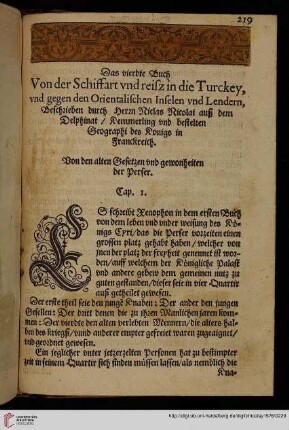 219
Das vierdte Buch
Von der Schiffart vnd reisz in die Turckey,
vnd gegen den Orientalischen Inseln vnd Lendern,
Beschrieben durch Herrn Niclas Nicolai auß dem
Delphinat / Kemmerling vnd bestelten
Geographi des Konigs in
Franckreich.
Von den alten Gesetzen vnd gewonheiten
der Perser.
Cap. 1.
ES schreibt Xenophon in dem ersten Buch
von dem leben vnd vnder weisung des Kö-
nigs Cyri/das die Perser vorzeiten einen
grossen platz gehabt haben/welcher von
inen der platz der freyheit genennet ist wor-
den/auff welchem der Königliche Palast
vnd andere gebew dem gemeinen nutz zu
guten gestanden/dieser seie in vier Quartir
auß getheilet gewesen.
Der erste theil seie den junge Knaben: Der ander den jungen
Gesellen: Der drit denen die zu jhren Manlichen jaren kom-
men: Der vierdte den alten verlebten Mennern/die alters hal-
ben des kriegß/vnnd anderer empter gefreiet waren zugeaignet/
vnd geordnet gewesen.
Ein jeglicher vnter jetzerzelten Personen hat zu bestimpter
zeit in seinem Quartir sich finden müssen lassen/als nemblich die
Kna-
UNIVERSITÄTS-
BIBLIOTHEK
HEIDELBERG